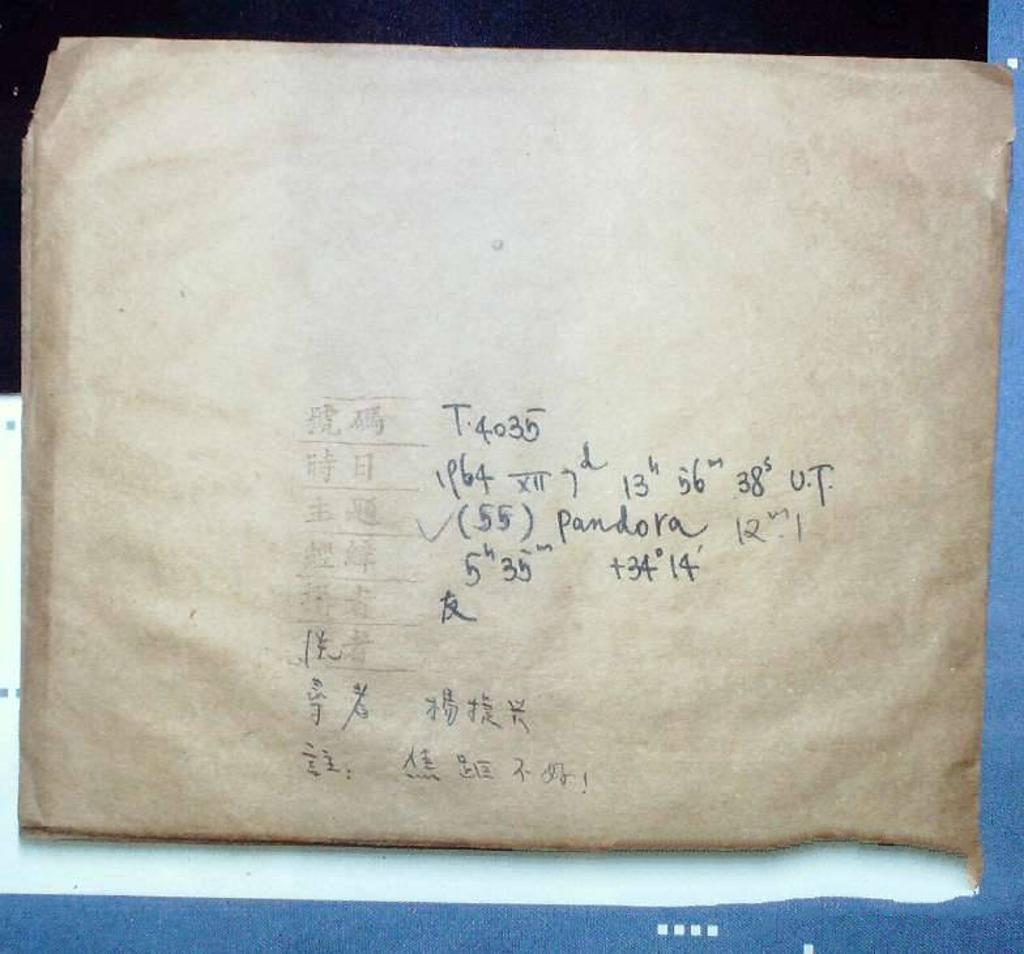 號碼 T.4035
時日 1964 XII 7ᵈ 13ʰ 56ᵐ 38ˢ U.T.
主題 ✓(55) Pandora 12ᵐ.1
經緯 5ʰ 35ᵐ +34° 14′
攝者 友
洗者
尋者 楊捷兴
註: 焦距不好!